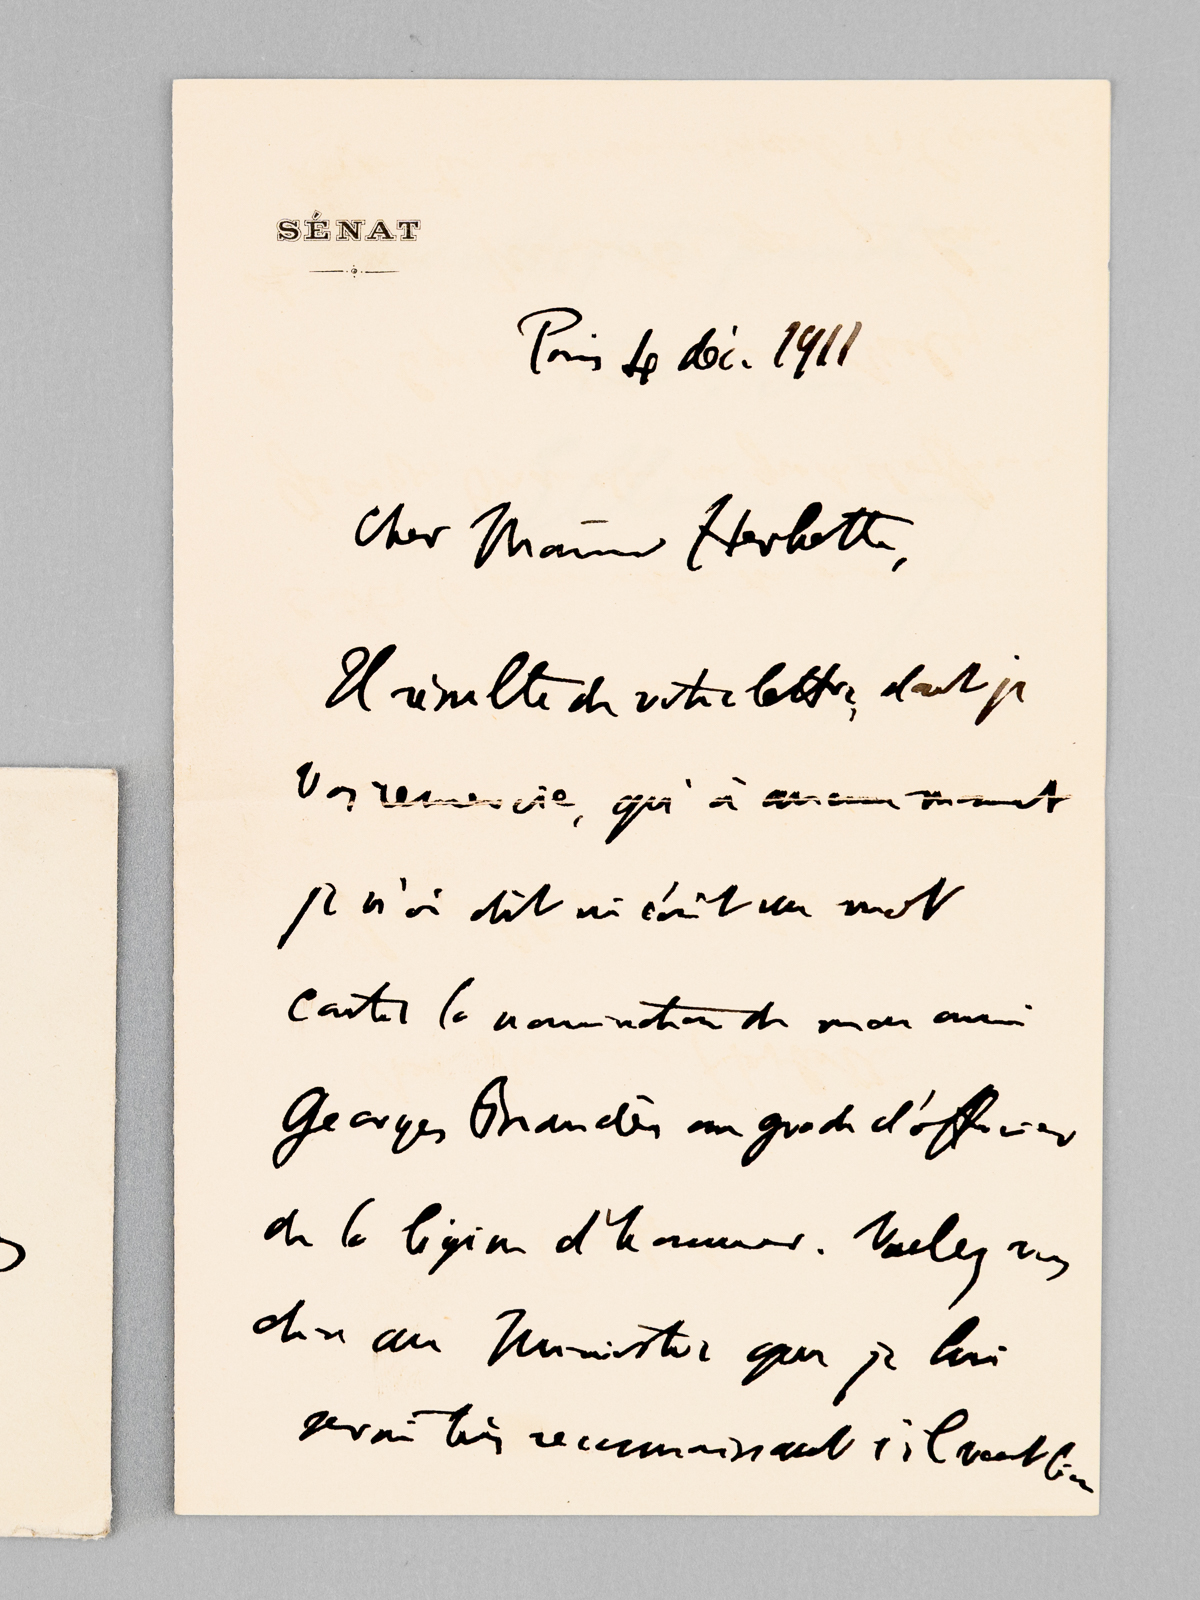 SÉNAT
Paris 4 déc. 1911
Cher Maurice Herbette,
Il résulte de votre lettre, dont je
vous remercie, qu'à aucun moment
je n'ai dit ni écrit un mot
contre la nomination de mon ami
Georges Brandès au grade d'officier
de la légion d'honneur. Voulez vous
dire au Ministre que je lui
serai très reconnaissant s'il veut bien